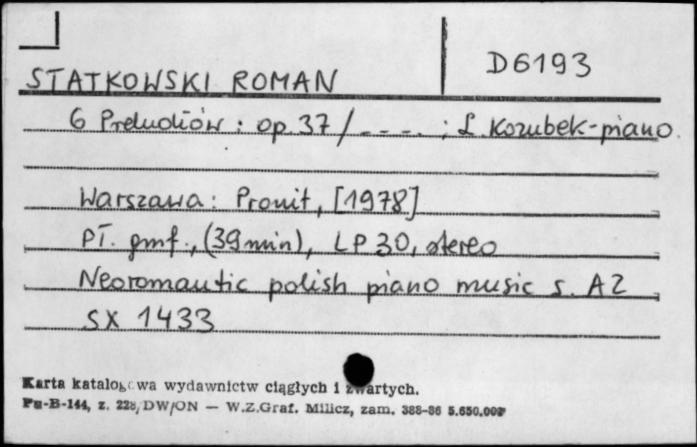 D6193
STATKOWSKI ROMAN
6 Preludiów : op. 37 / _ _ _ _ ; L Kozubek-piano
Warszawa : Pronit, [1978]
Pł. gmf., (39 min), LP 30, stereo
Neoromantic polish piano music s. A2
SX 1433
Karta katalogowa wydawnictw ciągłych i zwartych.
Pu-B-144, z. 228/DW/ON — W.Z.Graf. Milicz, zam. 388-86 5.650.000